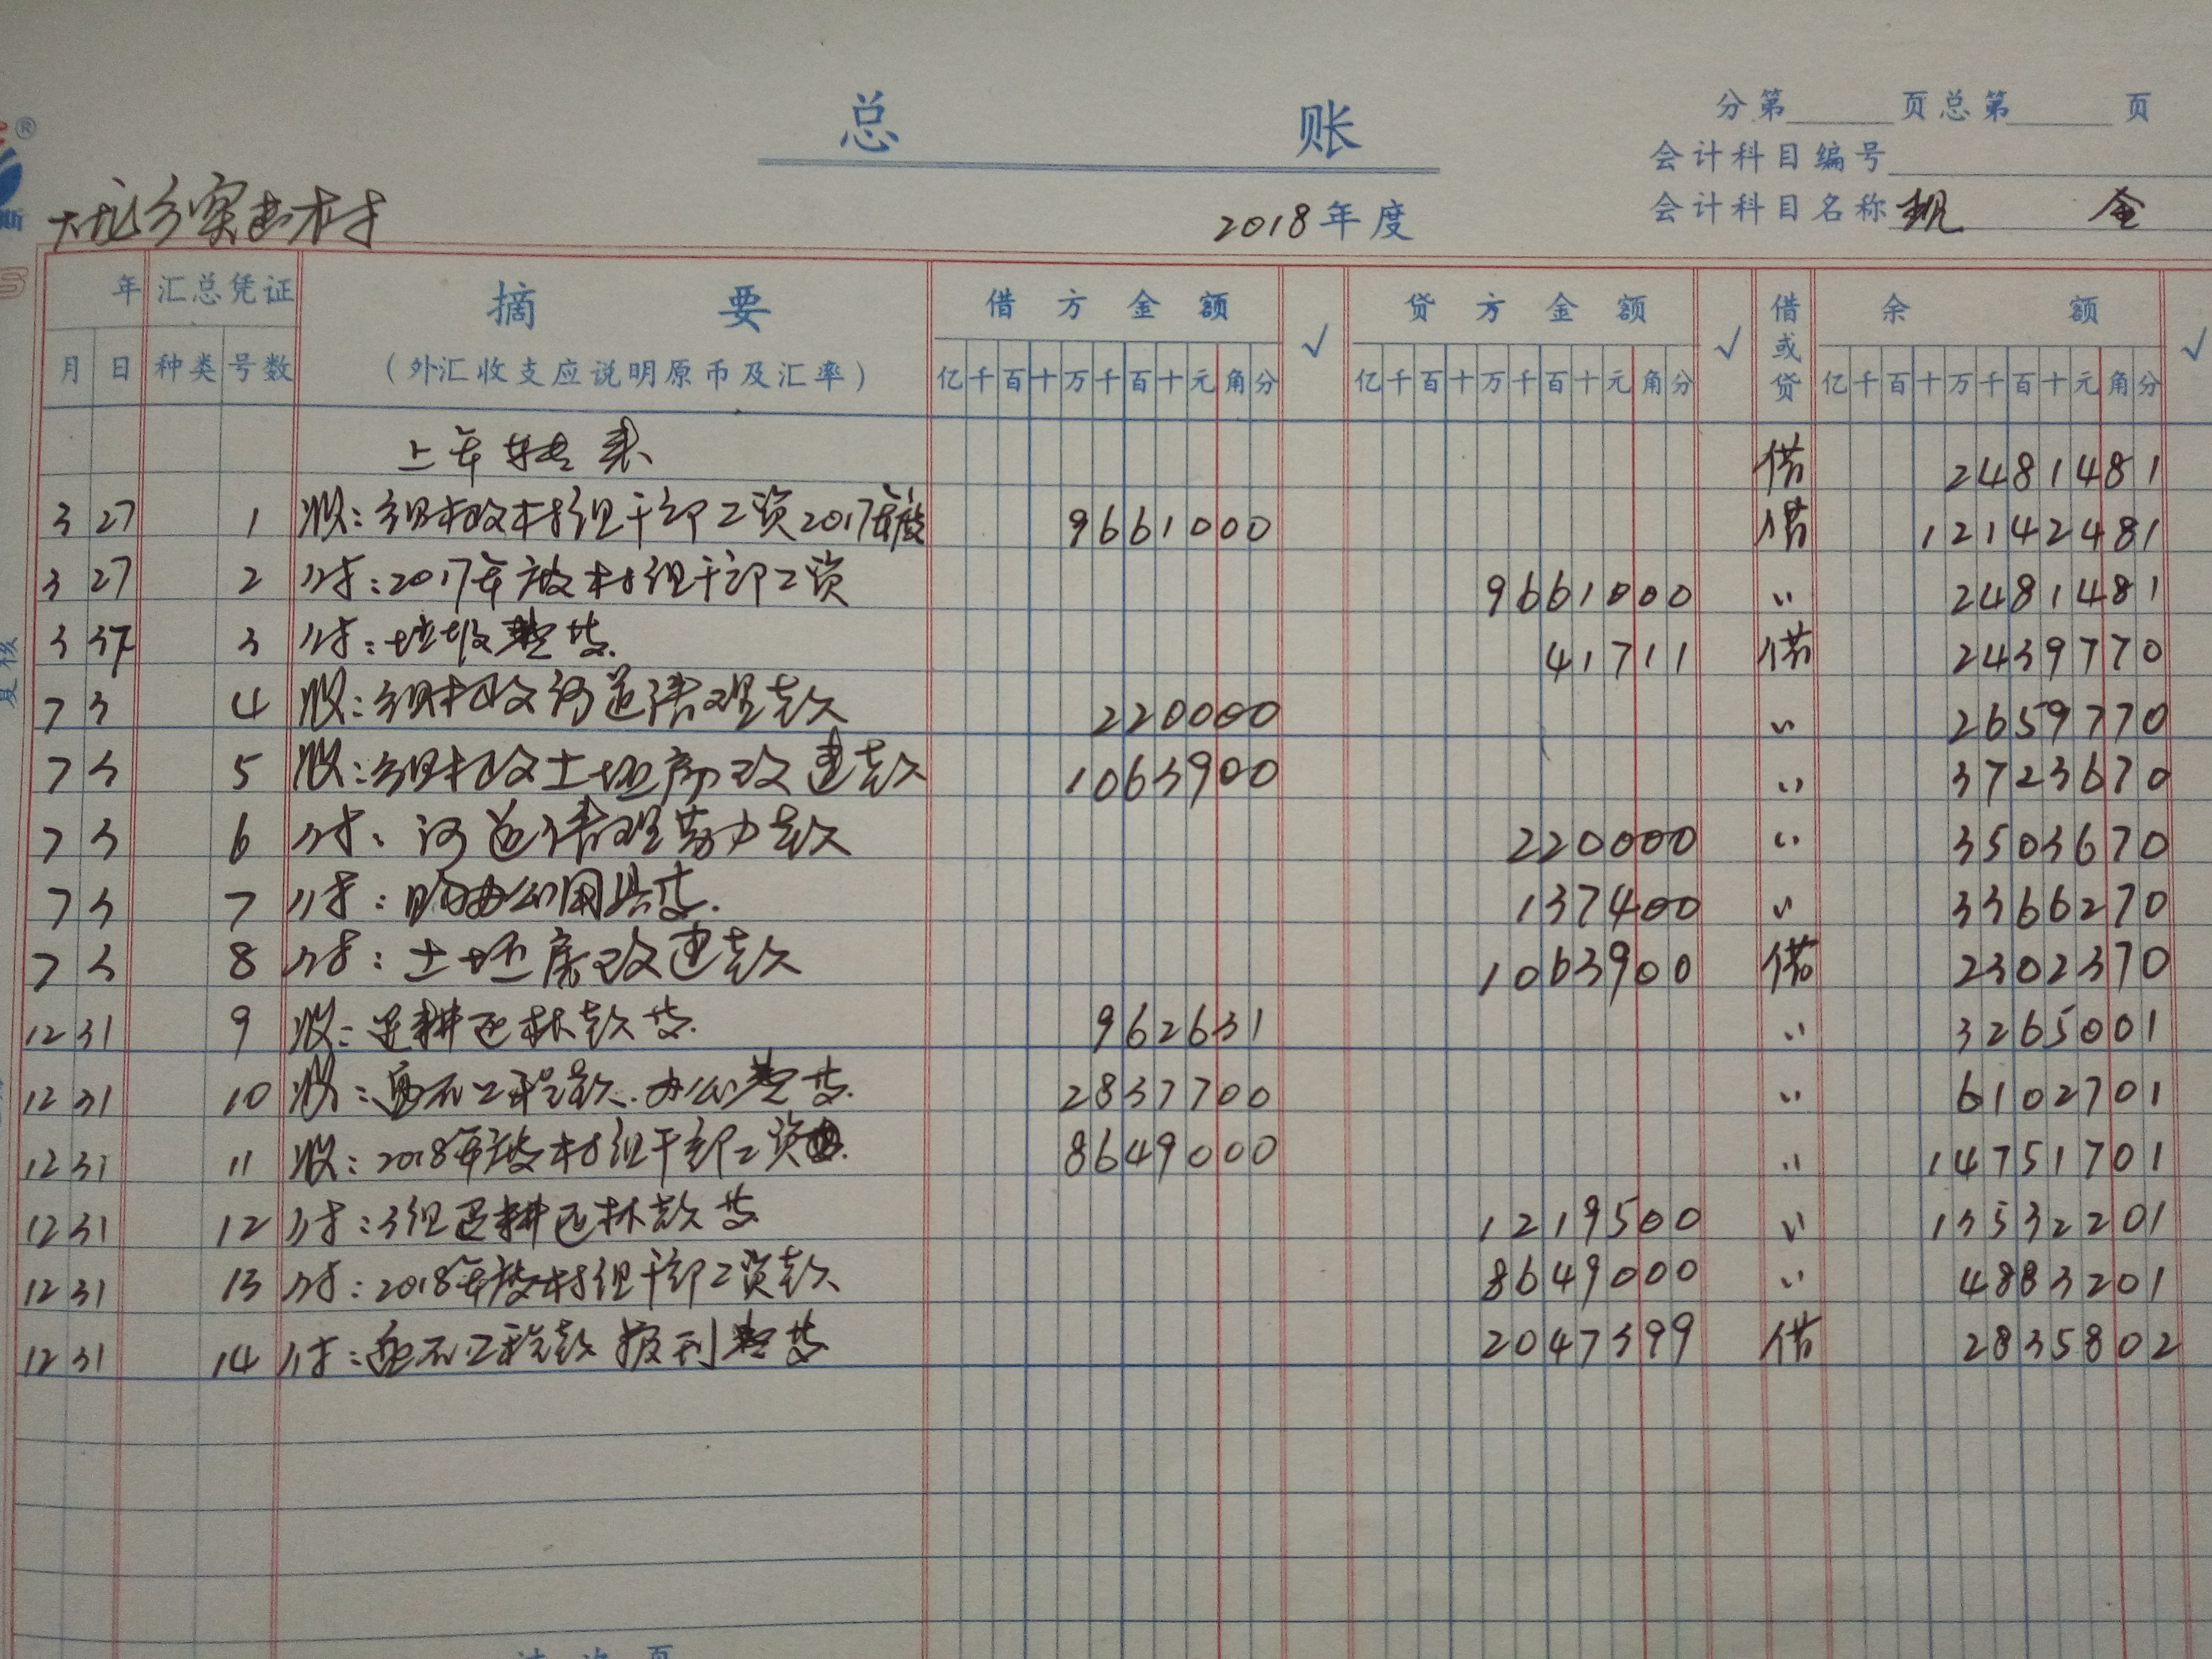 总 账
分第 页总第 页
会计科目编号
会计科目名称 现 金
2018年度
年 汇总凭证 摘 要 借方金额 √ 贷方金额 √ 借或贷 余 额 √
月 日 种类 号数 (外汇收支应说明原币及汇率) 亿千百十万千百十元角分 亿千百十万千百十元角分 亿千百十万千百十元角分
上年转来 借 2481481
3 27 1 收:乡财政村组干部工资2017年度 9661000 借 12142481
3 27 2 付:2017年度村组干部工资 9661000 〃 2481481
3 37 3 付:垃圾费等. 41711 借 2439770
7 3 4 收:乡财政河道清理款 220000 〃 2659770
7 3 5 收:乡财政土坯房改建款 1063900 〃 3723670
7 3 6 付:河道清理劳力款 220000 〃 3503670
7 3 7 付:购办公用具等. 137400 〃 3366270
7 3 8 付:土坯房改建款 1063900 借 2302370
12 31 9 收:退耕还林款等. 962631 〃 3265001
12 31 10 收:工程款.办公费等. 2837700 〃 6102701
12 31 11 收:2018年度村组干部工资 8649000 〃 14751701
12 31 12 付:3组退耕还林款等 1219500 〃 13532201
12 31 13 付:2018年度村组干部工资款 8649000 〃 4883201
12 31 14 付:工程款报刊费等 2047399 借 2835802
过次页